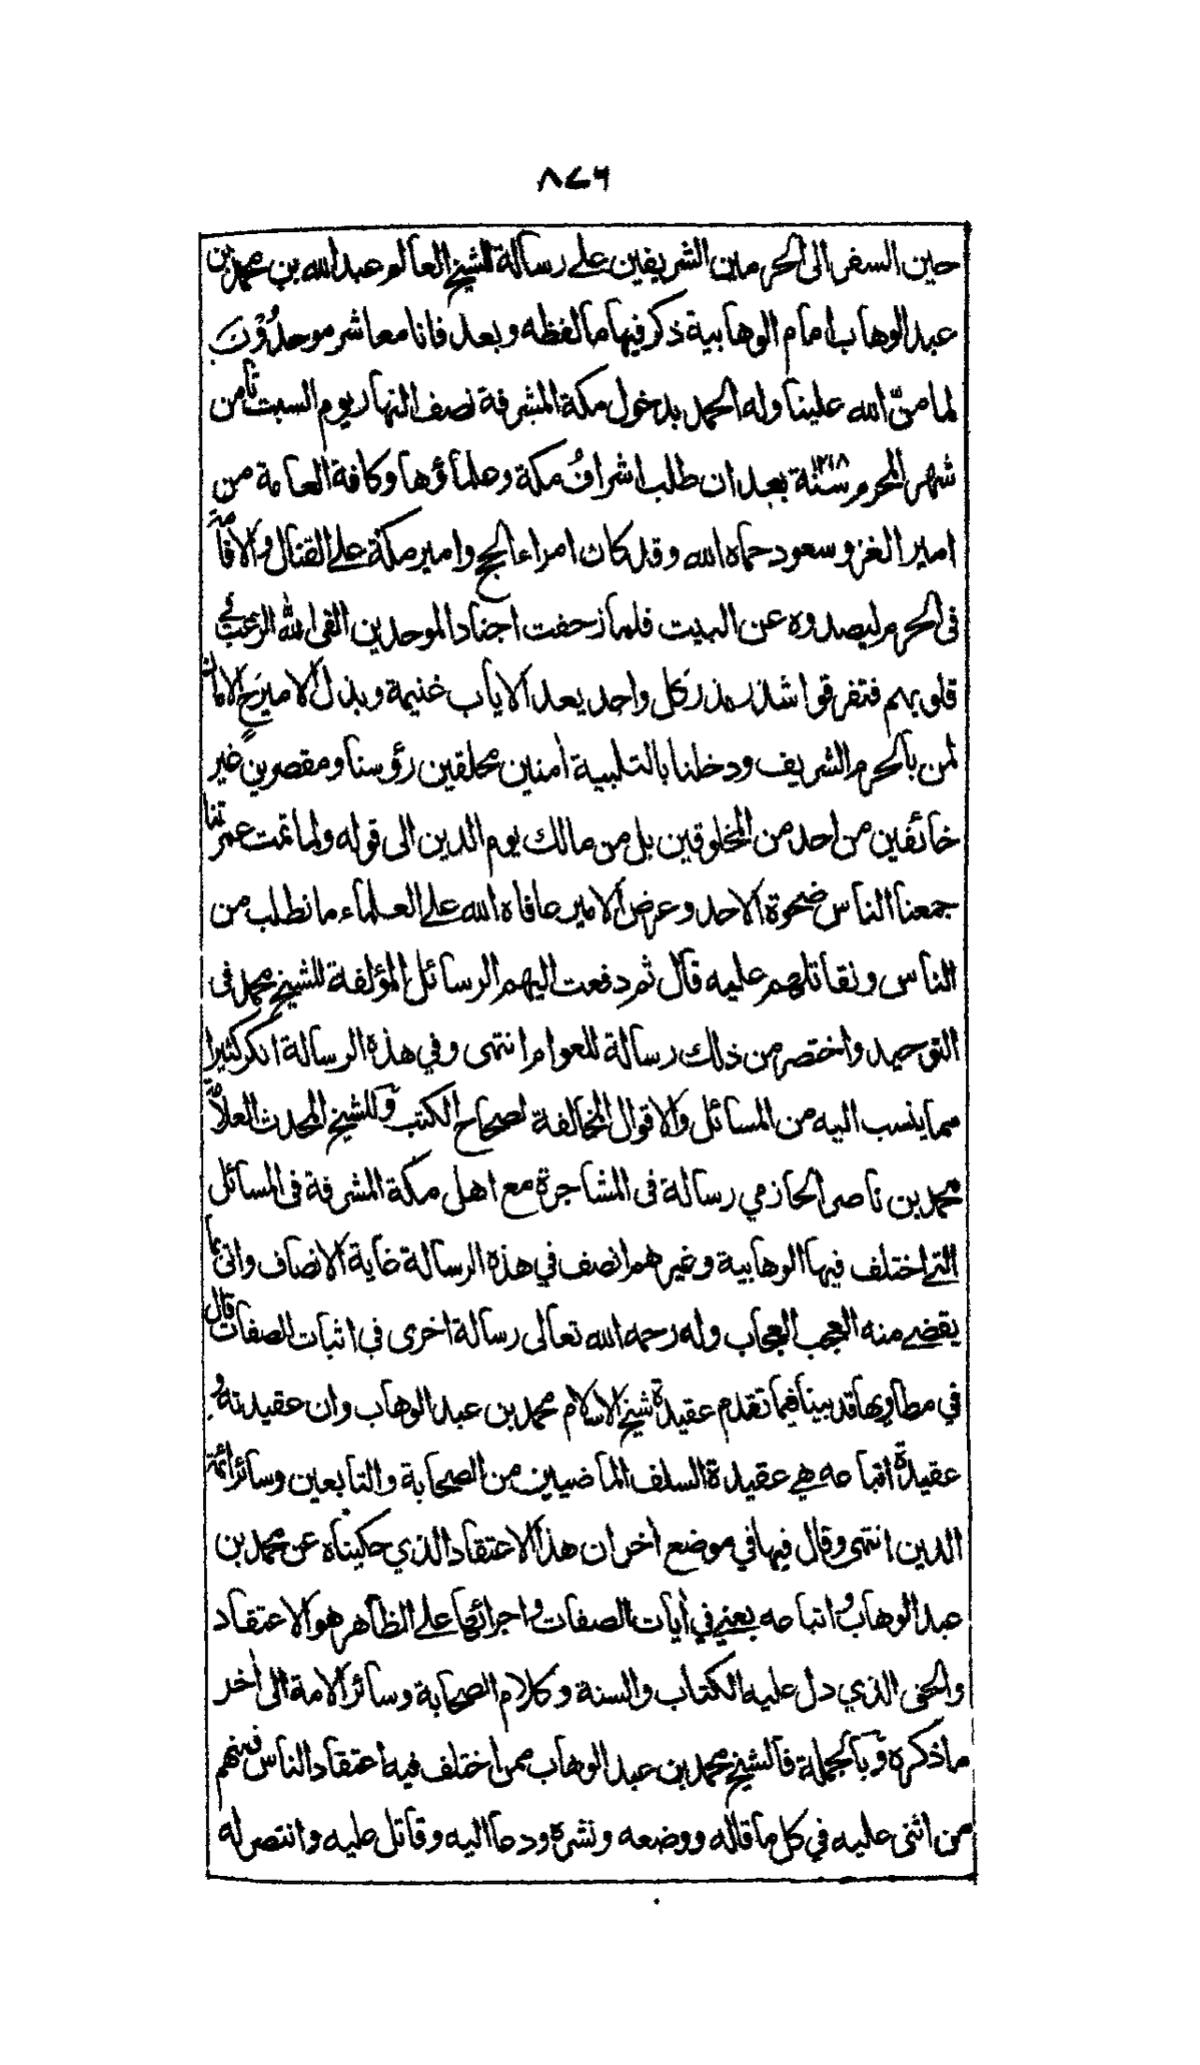 ٨٧٦
حين السفر الى الحرمين الشريفين على رسالة للشيخ العالم عبد الله بن محمد بن
عبد الوهاب امام الوهابية ذكر فيها ما لفظه وبعد فانا معاشر موحدُوْنَ
لما منّ الله علينا وله الحمد بدخول مكة المشرفة نصف النهار يوم السبت ثامن
شهر المحرم سنة ١٢١٨ بعد ان طلب اشرافُ مكة وعلماؤها وكافة العامة من
امير الغزو سعود حماه الله وقد كان امراء الحج وامير مكة على القتال والاقامة
فى الحرم ليصدوه عن البيت فلما زحفت اجناد الموحدين القى الله الرعب في
قلوبهم فتفرقوا شذر مذر كل واحد يعد الاياب غنيمة وبذل الامير ح الامان
لمن بالحرم الشريف ودخلنا بالتلبية اٰمنين محلقين رؤسنا ومقصرين غير
خائفين من احد من المخلوقين بل من مالك يوم الدين الى قوله ولما تمت عمرتنا
جمعنا الناس ضحوة الاحد وعرض الامير عافاه الله على العلماء ما نطلب من
الناس ونقاتلهم عليه قال ثم دفعت اليهم الرسائل المؤلفة للشيخ محمد فى
التوحيد واختصر من ذلك رسالة للعوام انتهى وفي هذه الرسالة انكر كثيرا
مما ينسب اليه من المسائل والاقوال المخالفة لصحاح الكتب وللشيخ المحدث العلامة
محمد بن ناصر الحازمي رسالة فى المشاجرة مع اهل مكة المشرفة فى المسائل
التى اختلف فيها الوهابية وغيرهم انصف في هذه الرسالة غاية الانصاف واتى بما
يقضے منه العجب العجاب وله رحمه الله تعالى رسالة اخرى فى اثبات الصفات قال
في مطاويها قد بينا فيما تقدم عقيدة شيخ الاسلام محمد بن عبد الوهاب وان عقيدته و
عقيدة اتباعه هي عقيدة السلف الماضيين من الصحابة والتابعين وسائر ائمة
الدين انتهى وقال فيها في موضع اٰخر ان هذا الاعتقاد الذي حكيناه عن محمد بن
عبد الوهاب واتباعه يعني في اٰيات الصفات واجرائها على الظاهر هو الاعتقاد
والحق الذي دل عليه الكتاب والسنة وكلام الصحابة وسائر الامة الى اٰخر
ما ذكره وبالجملة فالشيخ محمد بن عبد الوهاب ممن اختلف فيه اعتقاد الناس فمنهم
من اثنى عليه في كل ما قاله ووضعه ونشره ودعا اليه وقاتل عليه وانتصر له